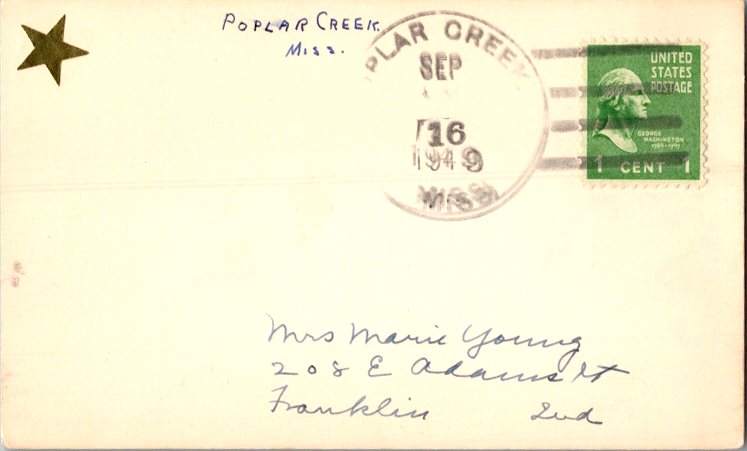 POPLAR CREEK.
Miss.
PLAR CREEK
SEP
16
1949
MISS
UNITED
STATES
POSTAGE
GEORGE
WASHINGTON
1 CENT 1
Mrs Marie Young
208 E Adams St
Franklin Ind